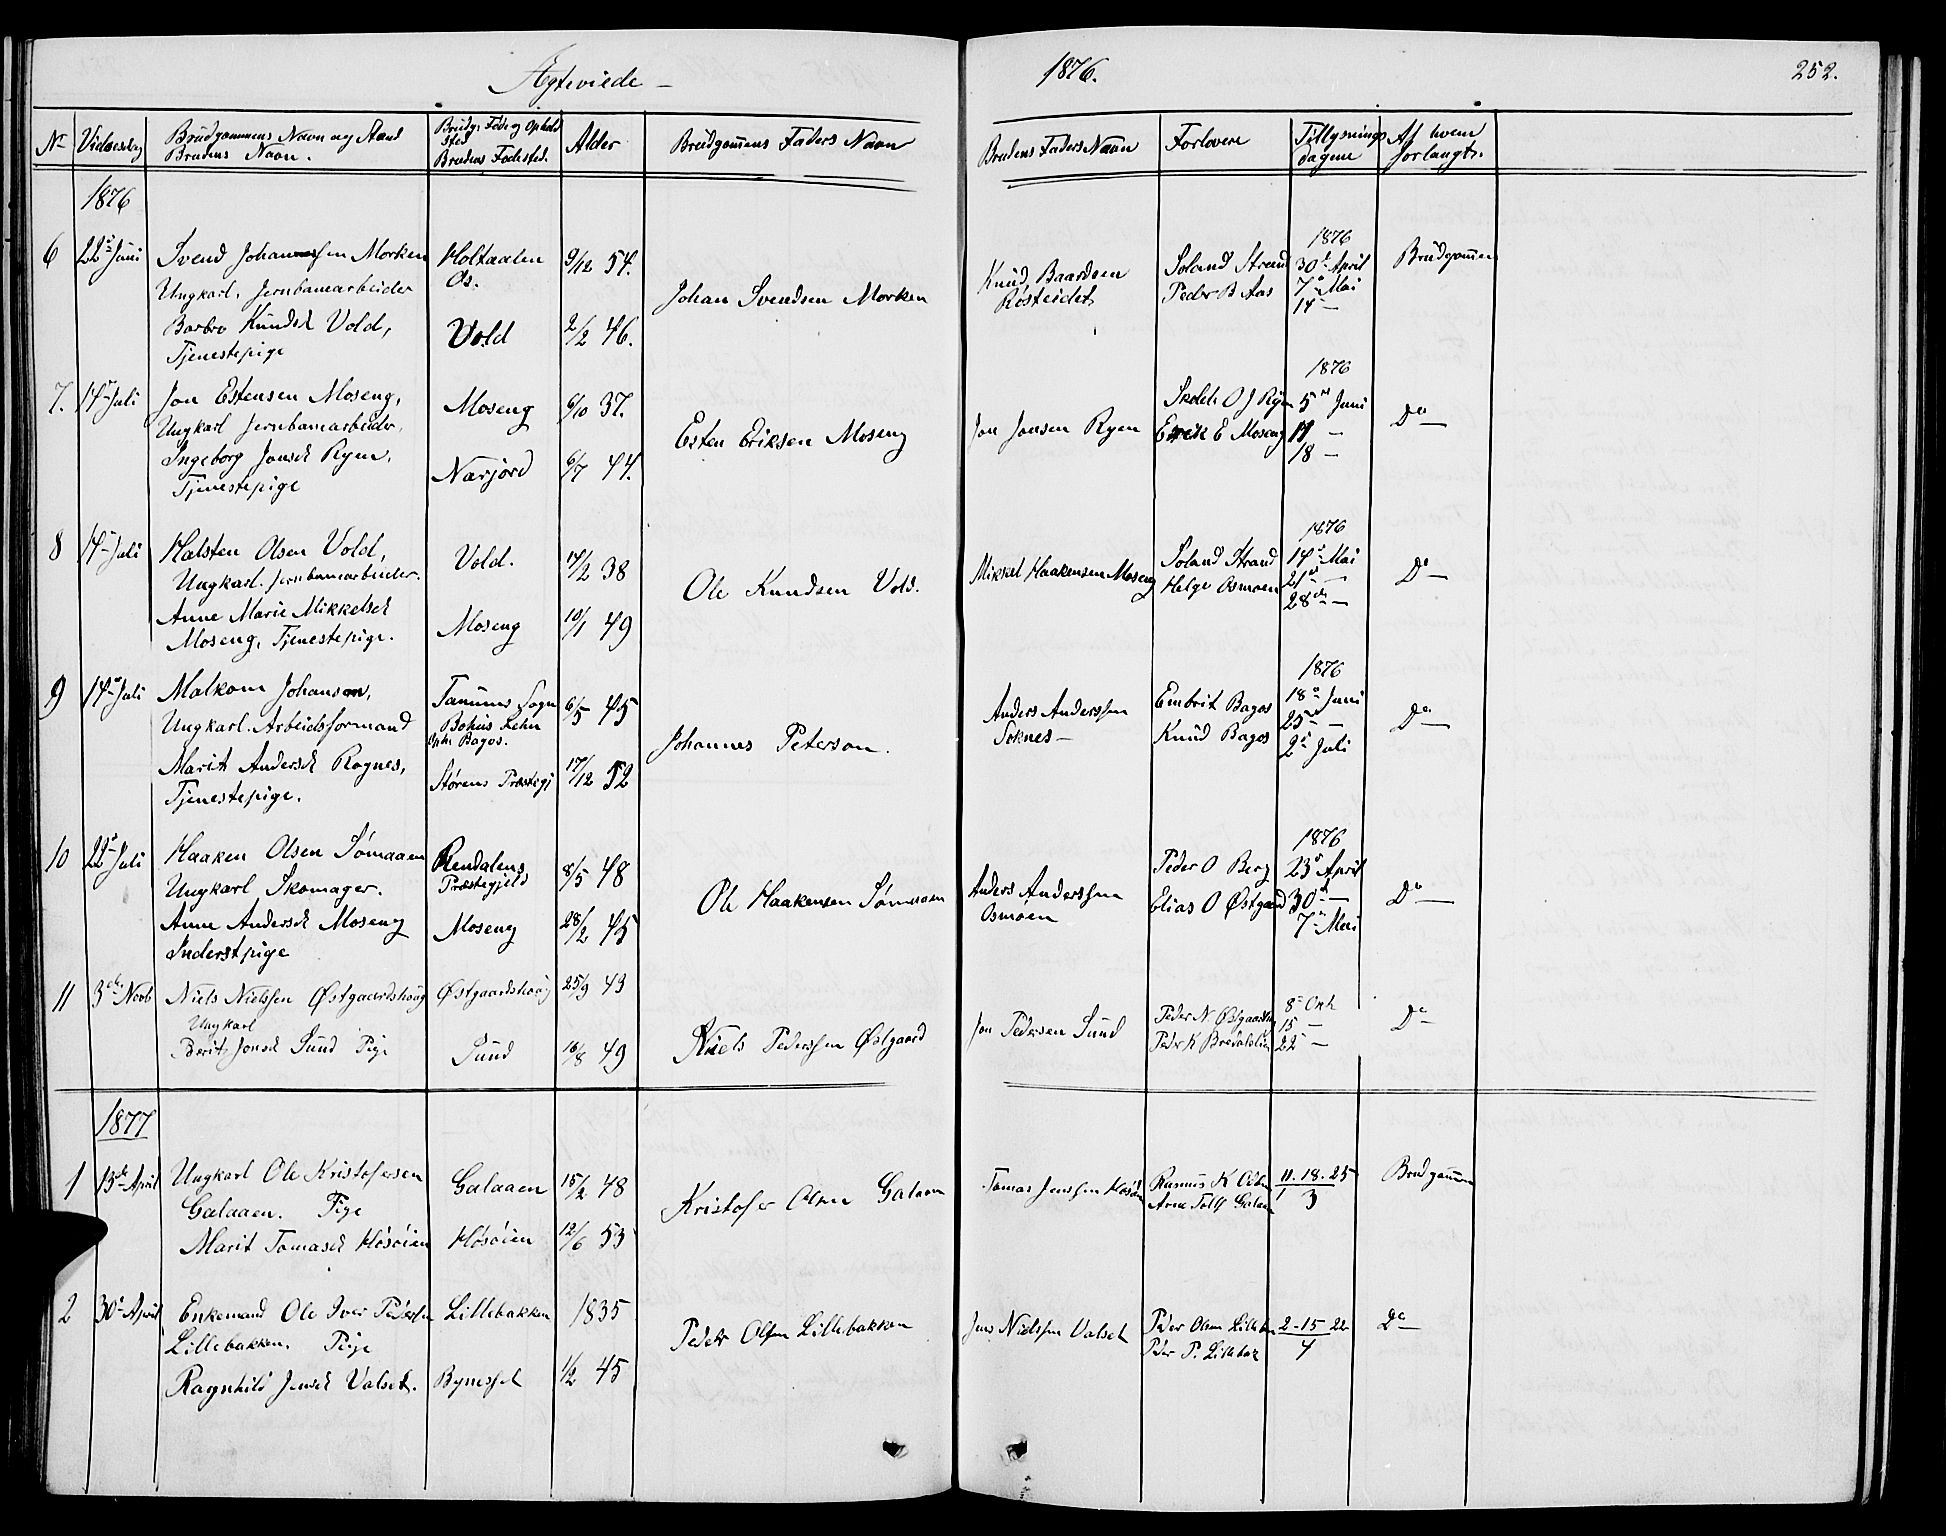 Ægteviede — 1876. 252.
No Vielsesdag Brudgommens Navn og Stand Brudens Navn. Brudg. Føde og Opholdsted Brudens Fødested. Alder Brudgommens Faders Navn Brudens Faders Navn Forlovere Tillysningsdagene Af hvem forlangt.
1876
6 22de Juni Svend Johannessen Morken Holtaalen 9/12 54.
Ungkarl, Jernbanearbeider Os. Johan Svendsen Morken
Barbro Knudsd Vold, Vold 2/2 46.
Tjenestepige
Knud Baardsen Røsteidet
Soland Strand
Peder B Aas
1876
30te April
7de Mai
14 —
Brudgommen
7. 14de Juli Jon Estensen Moseng, Moseng 6/10 37.
Ungkarl Jernbanearbeider. Esten Eriksen Moseng
Ingeborg Jonsd Ryen, Narjord 6/7 44.
Tjenestepige
Jon Jonsen Ryen
O J Ryen
E Moseng
1876
5te Juni
11 —
18 —
Do —
8 14de Juli Halsten Olsen Vold, Vold. 17/2 38
Ungkarl. Jernbanearbeider. Ole Knudsen Vold.
Anne Marie Mikkelsd Moseng 10/1 49
Moseng, Tjenestepige.
Mikkel Haakensen Moseng
Soland Strand
Helge Osmoen
1876
14de Mai
21de —
28de —
Do —
9 14de Juli Malkom Johanson, Tanums Sogn 6/5 45
Ungkarl. Arbeidsformand Bohus Lehn
Oph. Bagos. Johannes Peterson.
Marit Andersd Rognes, Størens Præstegj 17/12 52
Tjenestepige.
Anders Anderssen
Soknes —
Embrit Bagos
Knud Bagos
1876
18de Juni
25de —
2de Juli
Do —
10 22de Juli Haaken Olsen Sømaaen Rendalens 8/5 48
Ungkarl Skomager. Præstegjeld Ole Haakensen Sømaaen
Anne Andersd Moseng Moseng 28/2 45
Inderstpige
Anders Anderssen
Osmoen
Peder O Berg
Elias O Østgaard
1876
23de April
30te —
7de Mai
Do —
11 3die Novb Niels Nielssen Østgaardshaug Østgaardshaug 25/9 43
Ungkarl Niels Pederssen Østgaard
Berit Jonsd Sund Pige Sund 16/8 49
Jon Pedersen Sund
Peder N Østgaardshg
Peder K
8de Okt
15 —
22 —
Do —
1877
1 13de April Ungkarl Ole Kristofersen Galaaen 15/2 48
Galaaen. Pige Kristofer Olsen Galaaen
Marit Tomasd Høsøien Høsøien 12/6 53
Tomas Jenssen Høsøien
Rasmus K
Galaaen
11. 18. 25
3
Brudgommen
2 30te April Enkemand Ole Iver Pedersen Lillebakken 1835
Lillebakken. Pige Peder Olsen Lillebakken
Ragnhild Jensd Valset. Bynesset 1/2 45
Jens Nielssen Valset
Peder Olsen Lillebk
Peder P. Lillebak
2 - 15 22
4
Do